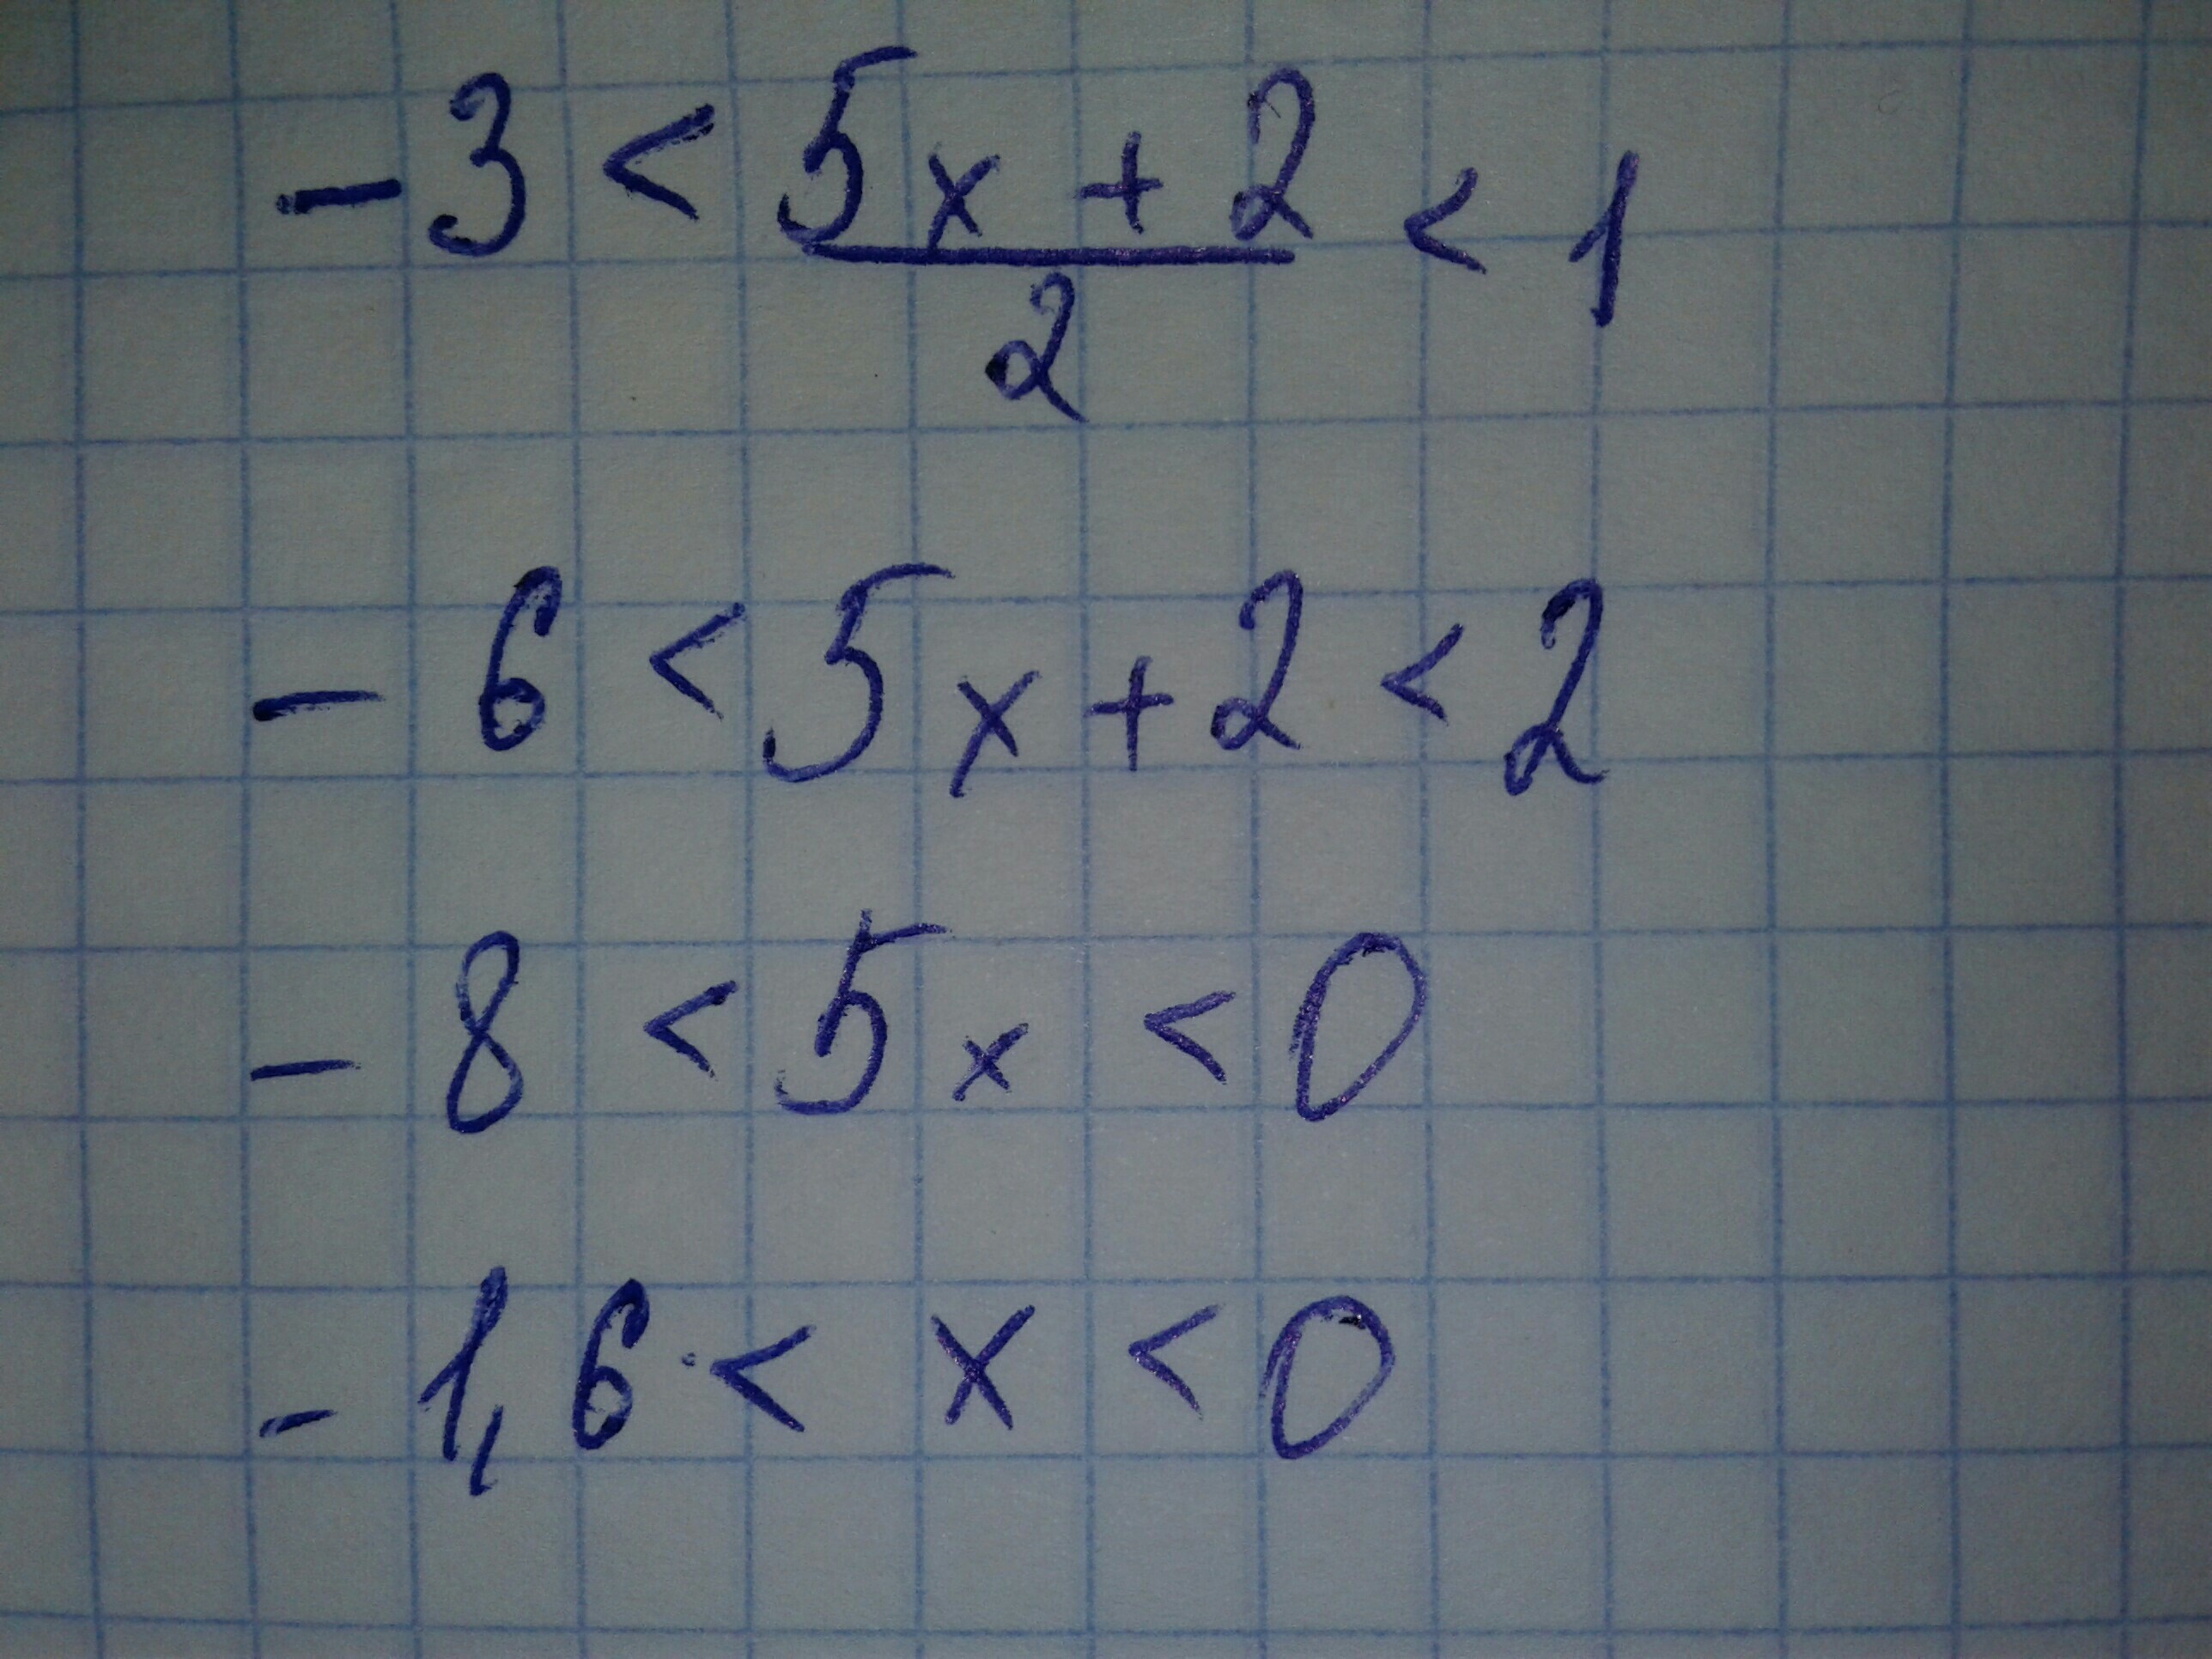 -3 < (5x + 2)/2 < 1
-6 < 5x + 2 < 2
-8 < 5x < 0
-1,6 < x < 0